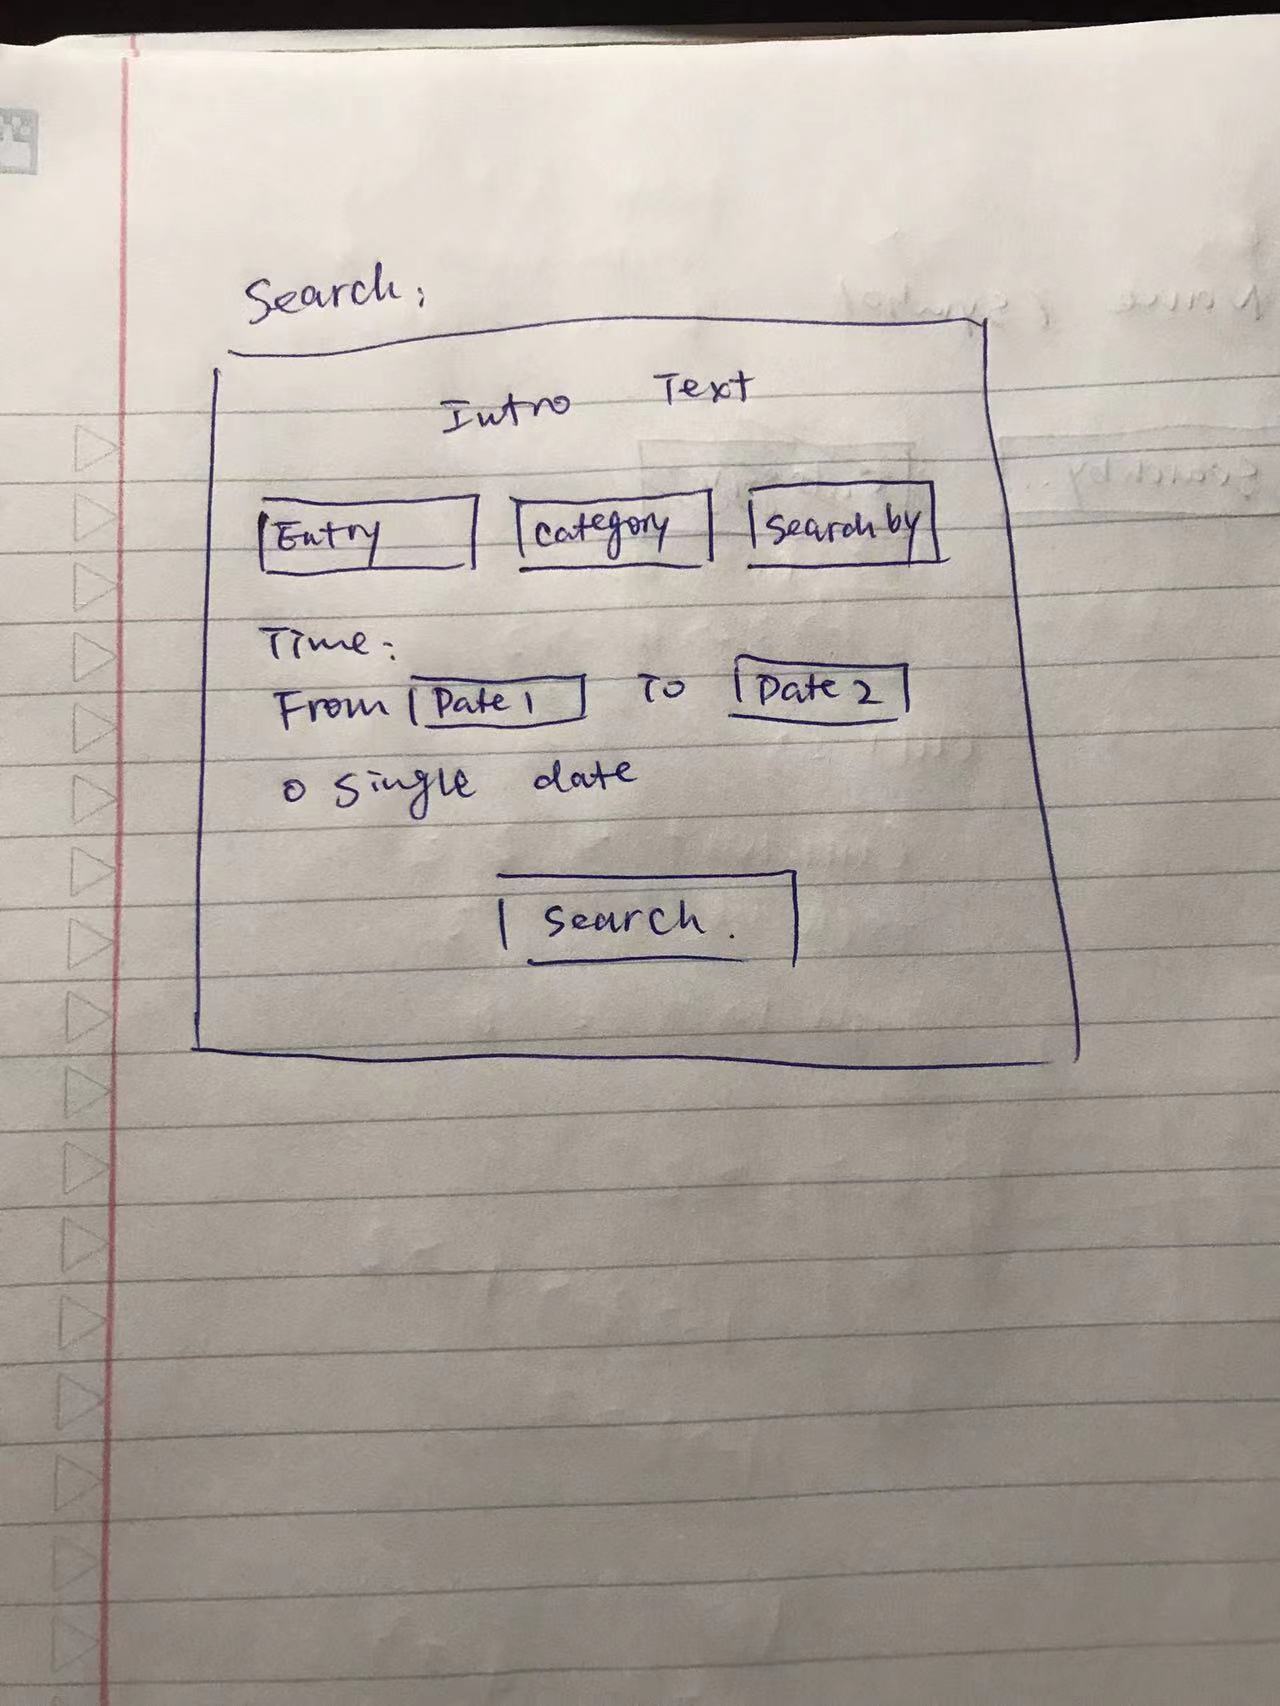 Search:
Intro Text
Entry Category Search by
Time:
From Date 1 To Date 2
o Single date
Search.